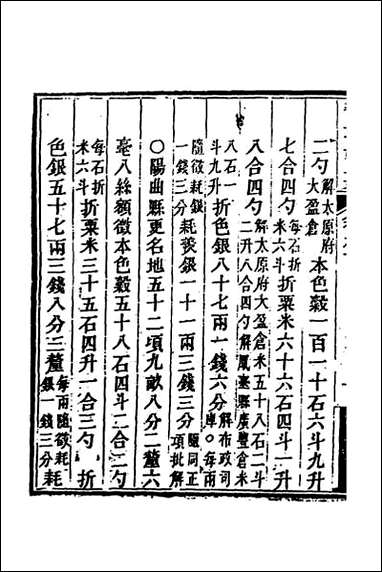 二勺解太原府大盈倉本色穀一百一十石六斗九升
七合四勺每石折米六斗折粟米六十六石四斗一升
八合四勺解太原府大盈倉米五十八石二斗二升八合四勺解鳳臺縣廣豐倉米
八石一斗九升折色銀八十七兩一錢六分解布政司庫○每兩
隨徵耗銀一錢三分耗羨銀一十一兩三錢三分隨同正項批解
○陽曲縣更名地五十二頃九畝八分二釐六
毫八絲額徵本色穀五十八石四斗二合二勺
每石折米六斗折粟米三十五石四升一合三勺 折
色銀五十七兩三錢八分三釐每兩隨徵耗銀一錢三分耗